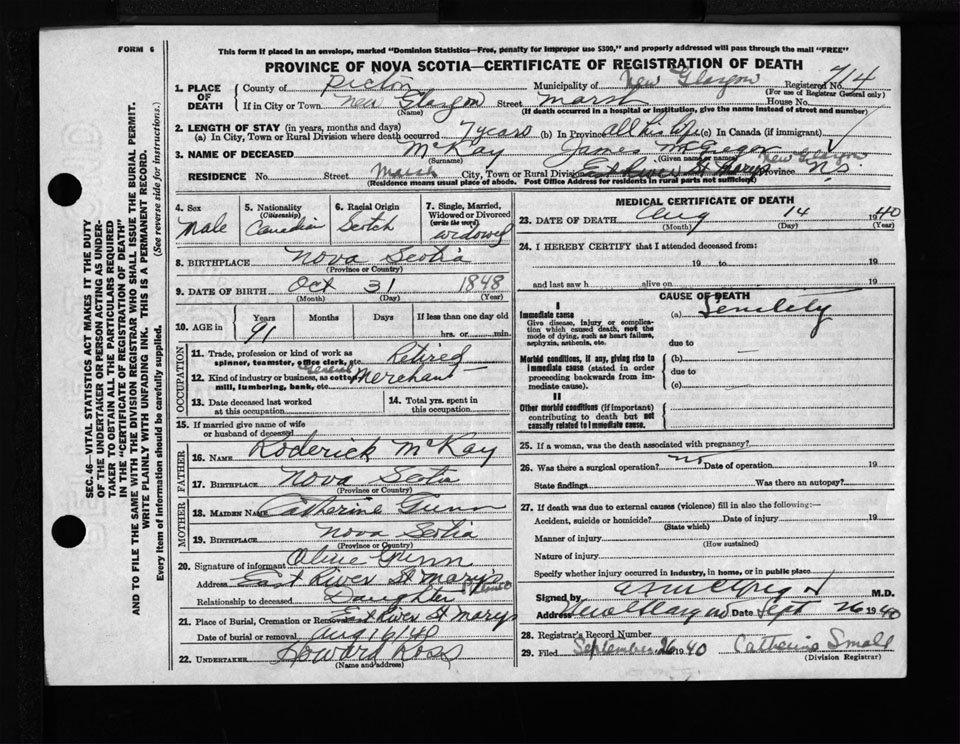 FORM 6
This form if placed in an envelope, marked "Dominion Statistics—Free, penalty for improper use $300," and properly addressed will pass through the mail "FREE"
PROVINCE OF NOVA SCOTIA—CERTIFICATE OF REGISTRATION OF DEATH
1. PLACE OF DEATH
County of Pictou Municipality of New Glasgow Registered No. 714
(For use of Registrar General only)
If in City or Town New Glasgow Street Marsh House No.
(Name) (If death occurred in a hospital or institution, give the name instead of street and number)
2. LENGTH OF STAY (in years, months and days)
(a) In City, Town or Rural Division where death occurred 7 years (b) In Province all his life (c) In Canada (if immigrant)
3. NAME OF DECEASED McKay James McGregor
(Surname) (Given name or names)
New Glasgow
RESIDENCE No. Street Marsh City, Town or Rural Division East River St Marys Province N.S
(Residence means usual place of abode. Post Office Address for residents in rural parts not sufficient)
4. Sex Male
5. Nationality (Citizenship) Canadian
6. Racial Origin Scotch
7. Single, Married, Widowed or Divorced (write the word) widowed
8. BIRTHPLACE Nova Scotia
(Province or Country)
9. DATE OF BIRTH Oct 31 1848
(Month) (Day) (Year)
10. AGE in Years Months Days If less than one day old
91 hrs. or min.
OCCUPATION
11. Trade, profession or kind of work as spinner, teamster, office clerk, etc. Retired
12. Kind of industry or business, as cotton mill, lumbering, bank, etc. General Merchant
13. Date deceased last worked at this occupation
14. Total yrs. spent in this occupation
15. If married give name of wife or husband of deceased
FATHER
16. NAME Roderick McKay
17. BIRTHPLACE Nova Scotia
(Province or Country)
MOTHER
18. MAIDEN NAME Catherine Gunn
19. BIRTHPLACE Nova Scotia
(Province or Country)
20. Signature of informant Olive Gunn
Address East River St Mary's
Relationship to deceased Daughter
21. Place of Burial, Cremation or Removal East River St Marys
Date of burial or removal Aug 16/40
22. UNDERTAKER Howard Ross
(Name and address)
MEDICAL CERTIFICATE OF DEATH
23. DATE OF DEATH Aug 14 1940
(Month) (Day) (Year)
24. I HEREBY CERTIFY that I attended deceased from:
19 to 19
and last saw h alive on 19
CAUSE OF DEATH
I
Immediate cause (a) Senility
Give disease, injury or complication which caused death, not the mode of dying, such as heart failure, asphyxia, asthenia, etc.
due to
Morbid conditions, if any, giving rise to immediate cause (stated in order proceeding backwards from immediate cause).
(b)
due to
(c)
II
Other morbid conditions (if important) contributing to death but not causally related to immediate cause.
25. If a woman, was the death associated with pregnancy?
26. Was there a surgical operation? no Date of operation 19
State findings Was there an autopsy?
27. If death was due to external causes (violence) fill in also the following:—
Accident, suicide or homicide? Date of injury 19
(State which)
Manner of injury
(How sustained)
Nature of injury
Specify whether injury occurred in industry, in home, or in public place
Signed by M.D.
Address New Glasgow Date Sept 26 1940
28. Registrar's Record Number
29. Filed September 26 1940 Catherine Small
(Division Registrar)
SEC. 46—VITAL STATISTICS ACT MAKES IT THE DUTY
OF THE UNDERTAKER OR PERSON ACTING AS UNDER-
TAKER TO OBTAIN ALL THE PARTICULARS REQUIRED
IN THE "CERTIFICATE OF REGISTRATION OF DEATH"
AND TO FILE THE SAME WITH THE DIVISION REGISTRAR WHO SHALL ISSUE THE BURIAL PERMIT.
WRITE PLAINLY WITH UNFADING INK. THIS IS A PERMANENT RECORD.
Every item of information should be carefully supplied. (See reverse side for instructions.)